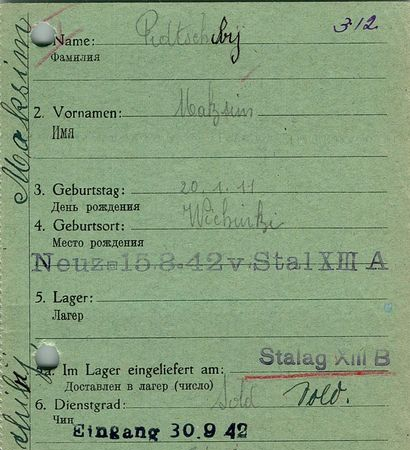 312
Name:
Фамилия
2. Vornamen: Maksim
Имя
3. Geburtstag: 20.1.11
День рождения
4. Geburtsort:
Место рождения
Neuz. 15.8.42 v. Stal XIII A
5. Lager:
Лагерь
Stalag XIII B
Im Lager eingeliefert am:
Доставлен в лагерь (число)
6. Dienstgrad: Sold Sold.
Чин
Eingang 30.9 42
Maksim